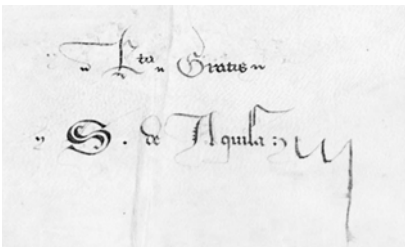 Rta Gratis
S. de Aquila